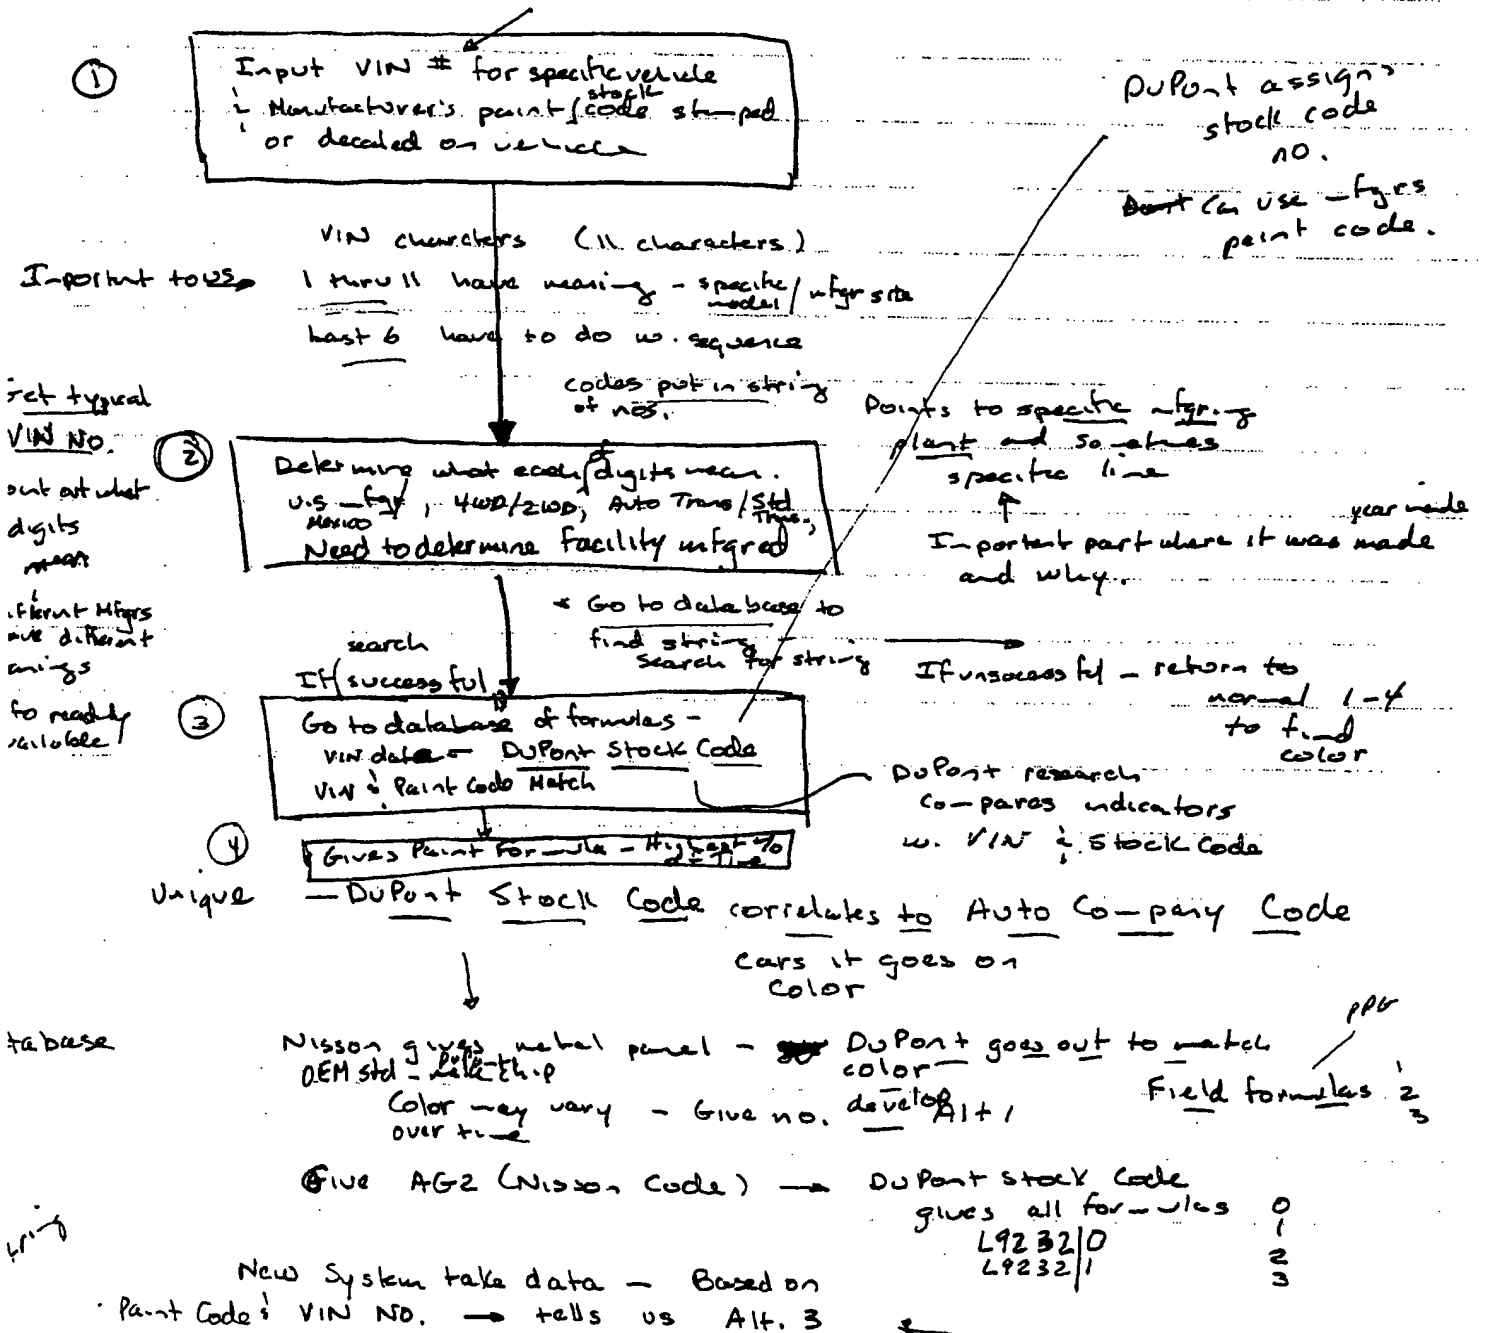 1
Input VIN # for specific vehicle
& Manufacturer's paint/stock code stamped
or decaled on vehicle
DuPont assigns
stock code
no.
Can use mfgrs
paint code.
VIN characters (11 characters)
Important to us
1 thru 11 have meaning - specific model / mfgr site
Last 6 have to do w. sequence
codes put in string
of nos.
Get typical
VIN NO.
out what
digits
mean
Different Mfgrs
have different
meanings
to readily
available
2
Determine what each digits mean.
U.S mfgr, 4WD/2WD, Auto Trans/Std Trans.,
Mexico
Need to determine Facility mfgred
Points to specific mfgring
plant and sometimes
specific line
year made
Important part where it was made
and why.
* Go to database to
find string -
search for string
If unsuccessful - return to
normal 1-4
to find
color
If search successful -
3
Go to database of formulas -
VIN data - DuPont Stock Code
VIN & Paint Code Match
DuPont research
Compares indicators
w. VIN & Stock Code
4
Gives Paint Formula - Highest %
of Time
Unique - DuPont Stock Code correlates to Auto Company Code
cars it goes on
color
tabase
Nisson gives metal panel - DuPont goes out to match
color
OEM std -
PPG
Field formulas 1
2
3
Color may vary - Give no. develop Alt 1
over time
Give AG2 (Nisson Code) → DuPont Stock Code
gives all formulas 0
1
2
3
L9232|0
L9232|1
New System take data - Based on
Paint Code & VIN NO. → tells us Alt. 3